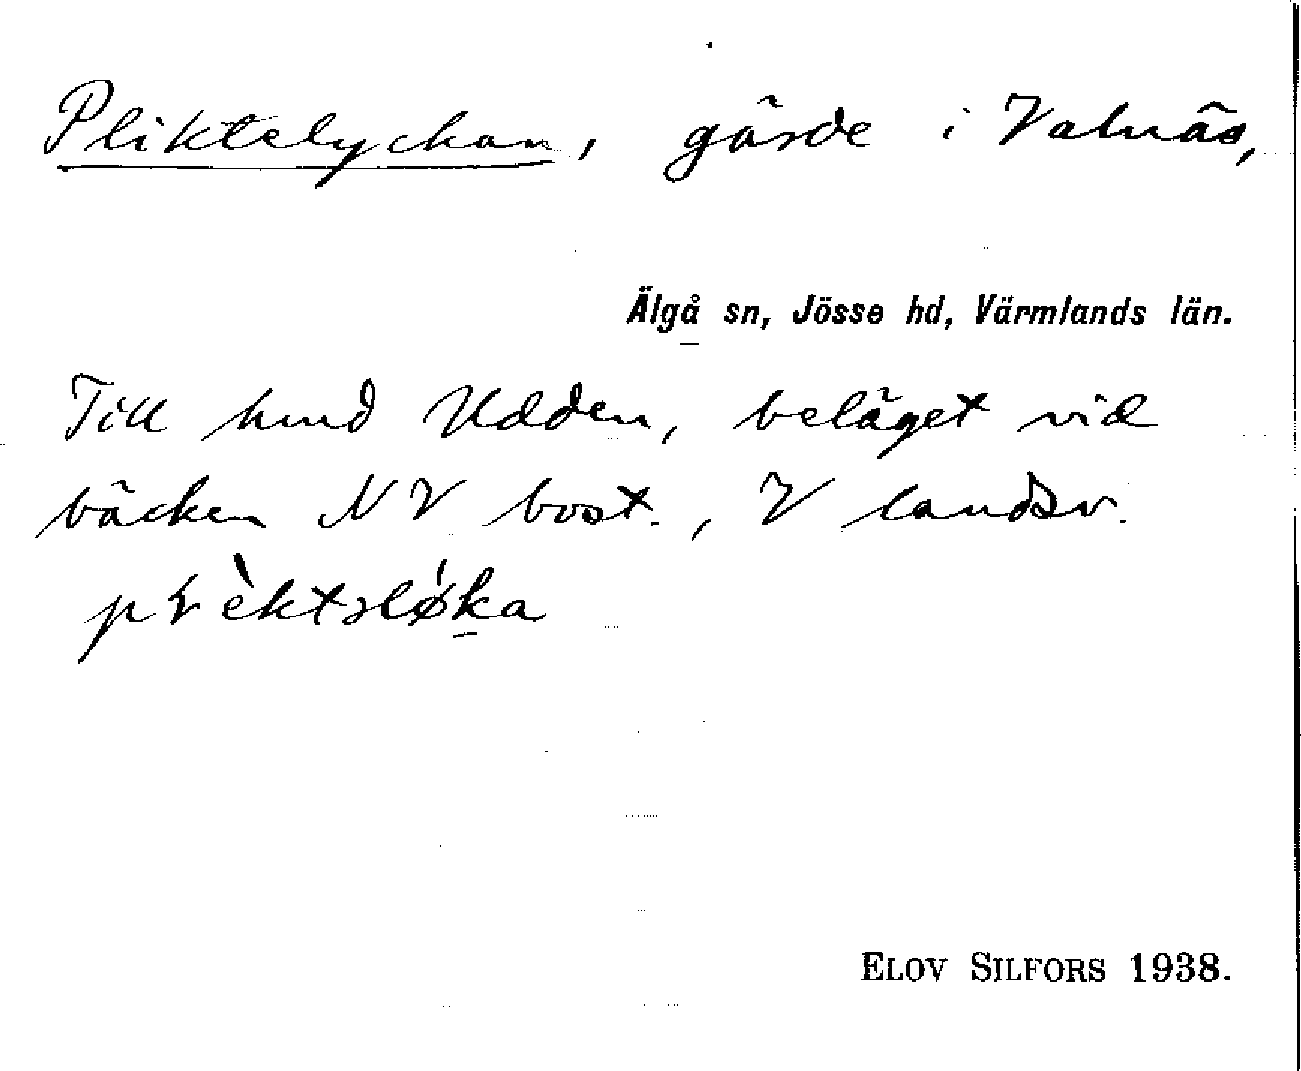 Pliktelyckan, gärde i Valnäs,
Älgå sn, Jösse hd, Värmlands län.
Till hmd Udden, beläget vid
bäcken NV bost., V landsv.
ELOV SILFORS 1938.